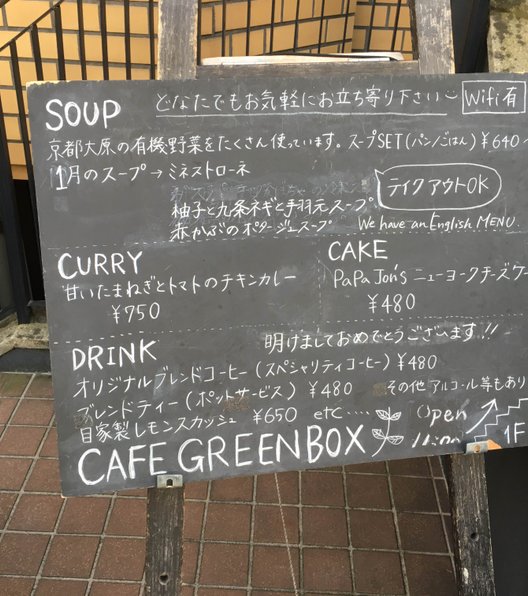 SOUP
どなたでもお気軽にお立ち寄り下さい
Wifi有
京都大原の有機野菜をたくさん使っています。スープSET(パン/ごはん)¥640~
1月のスープ→ミネストローネ
柚子と九条ネギと手羽元スープ
赤かぶのポタージュスープ
テイクアウトOK
We have an English MENU
CURRY
甘いたまねぎとトマトのチキンカレー
¥750
CAKE
PaPa Jon's ニューヨークチーズケ
¥480
明けましておめでとうございます!!
DRINK
オリジナルブレンドコーヒー(スペシャリティコーヒー)¥480
ブレンドティー(ポットサービス)¥480
その他アルコール等もあり
自家製レモンスカッシュ ¥650 etc....
Open
1F
CAFE GREEN BOX